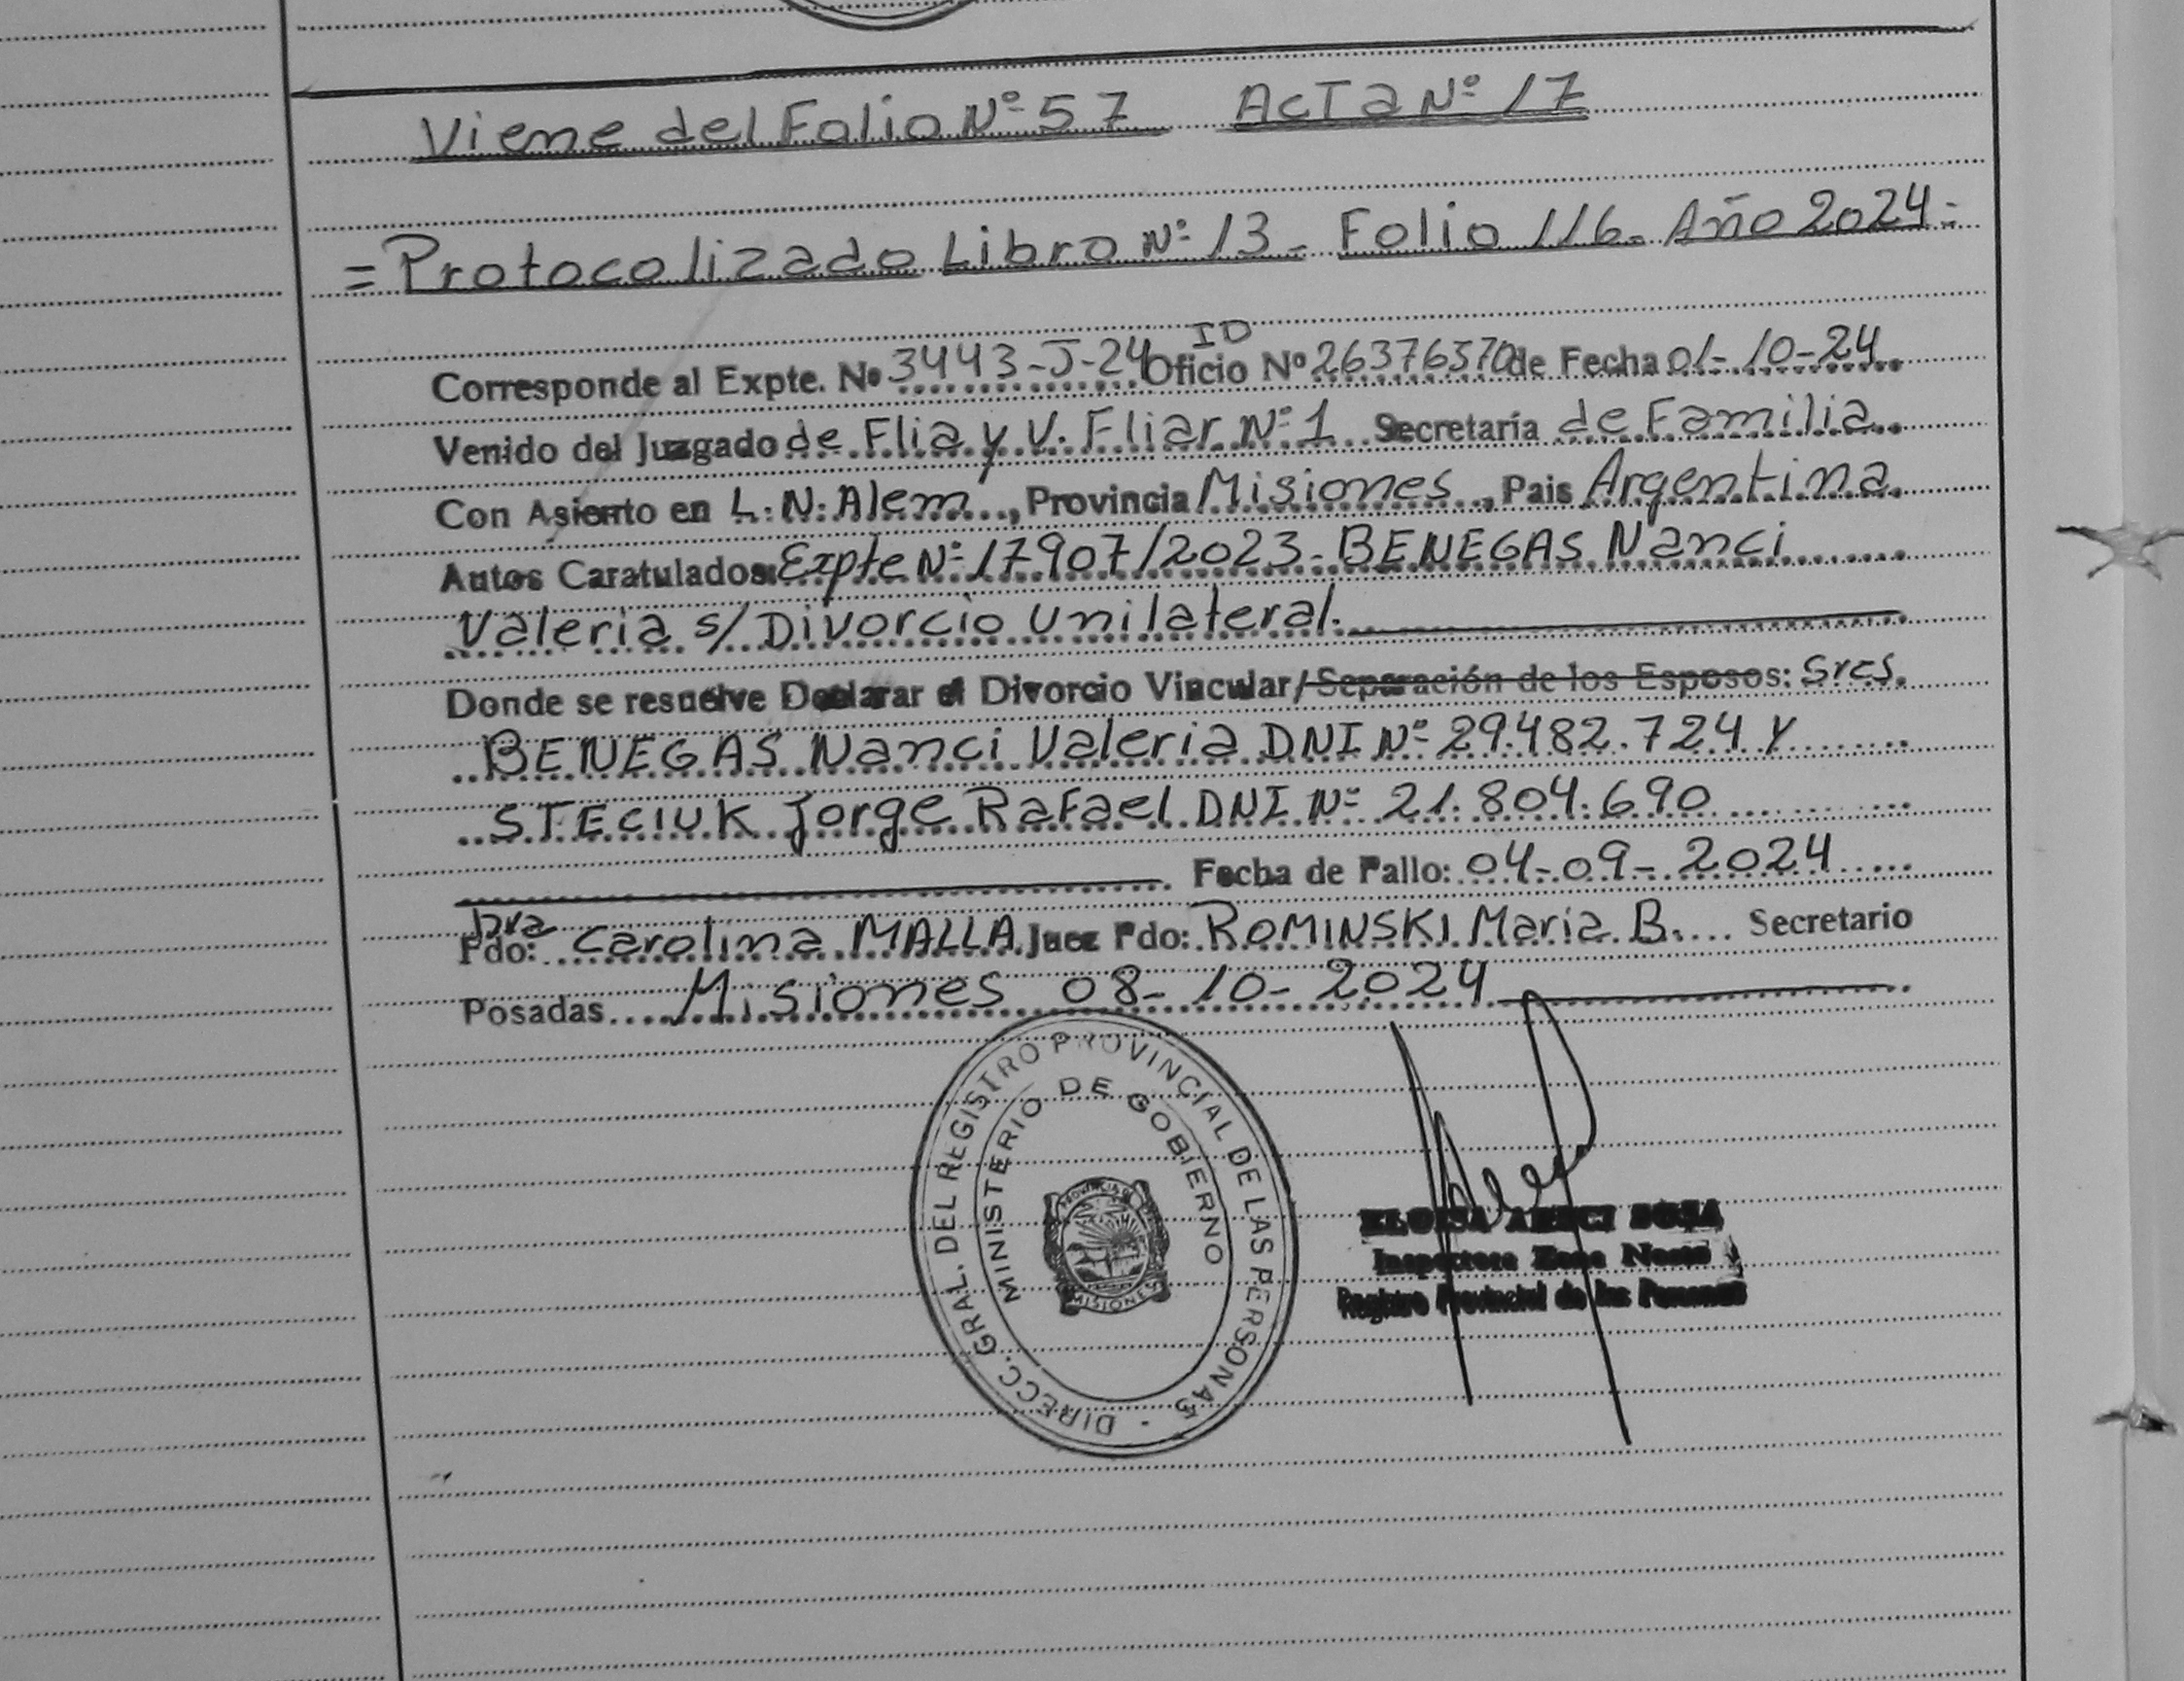 Viene del Folio Nº 57 Acta Nº 17
= Protocolizado Libro Nº 13 - Folio 116 - Año 2024 =
ID
Corresponde al Expte. Nº 3443-J-24 Oficio Nº 26376370 de Fecha 01-10-24
Venido del Juzgado de Flia y V. Fliar Nº 1 Secretaría de Familia
Con Asiento en L. N. Alem, Provincia Misiones, Pais Argentina
Autos Caratulados: Expte Nº 17907/2023 - BENEGAS Nanci
Valeria s/ Divorcio Unilateral.
Donde se resuelve Declarar el Divorcio Vincular/Separación de los Esposos: Sres.
BENEGAS Nanci Valeria DNI Nº 29.482.724 y
STECIUK Jorge Rafael DNI Nº 21.804.690
Fecha de Fallo: 04-09-2024
Dra
Fdo: Carolina MALLA Juez Fdo: ROMINSKI Maria B. Secretario
Posadas Misiones 08-10-2024
DIRECC. GRAL. DEL REGISTRO PROVINCIAL DE LAS PERSONAS -
MINISTERIO DE GOBIERNO
PROVINCIA DE
MISIONES
ELOISA SOSA
Inspectora Zona
Registro Provincial de las Personas